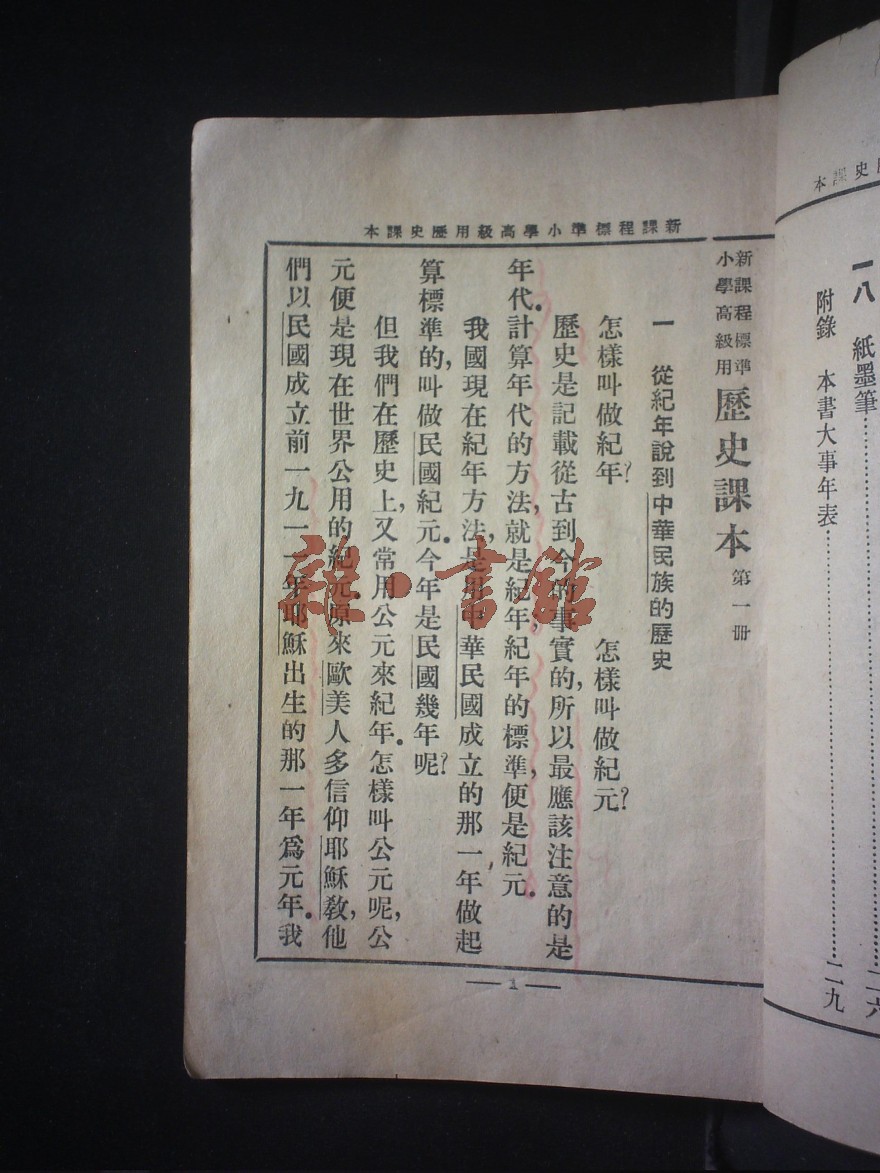 一八 紙墨筆……二六
附錄 本書大事年表……二九
新課程標準小學高級用歷史課本
新課程標準
小學高級用
歷史課本 第一冊
一 從紀年說到中華民族的歷史
怎樣叫做紀年? 怎樣叫做紀元?
歷史是記載從古到今的事實的,所以最應該注意的是
年代。計算年代的方法,就是紀年,紀年的標準,便是紀元。
我國現在紀年方法,是用中華民國成立的那一年做起
算標準的,叫做民國紀元。今年是民國幾年呢?
但我們在歷史上,又常用公元來紀年。怎樣叫公元呢,公
元便是現在世界公用的紀元。原來歐美人多信仰耶穌教,他
們以民國成立前一九一一年耶穌出生的那一年爲元年。我
1
雜·書館